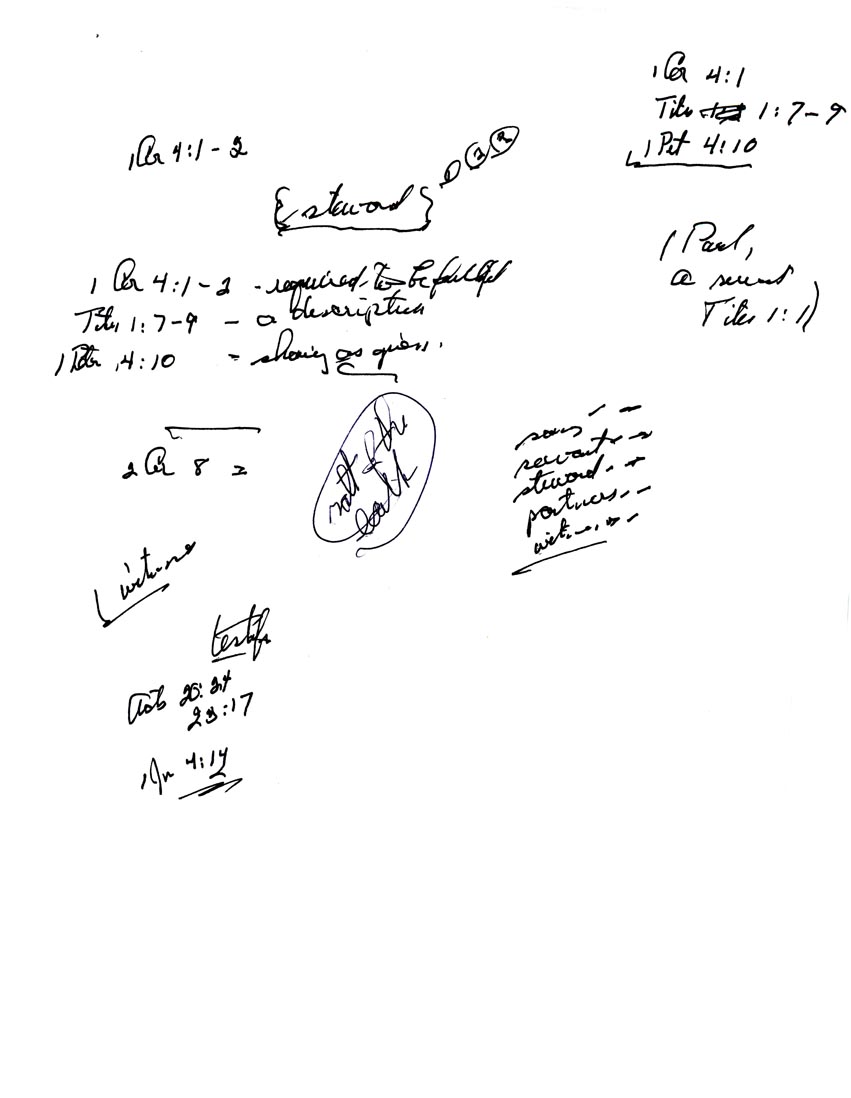 1 Cor 4:1
Titus 1:7-9
1 Pet 4:10
1 Cor 4:1-2
{steward}
1 Cor 4:1-2 - required to be faithful
Titus 1:7-9 - a description
1 Peter 4:10 - sharing as given.
( Paul,
a servant
Titus 1:1)
2 Cor 8 =
salt of the
earth
sons
servants
steward
partners
witness
witness
testify
Acts 20:24
23:17
1 Jn 4:14